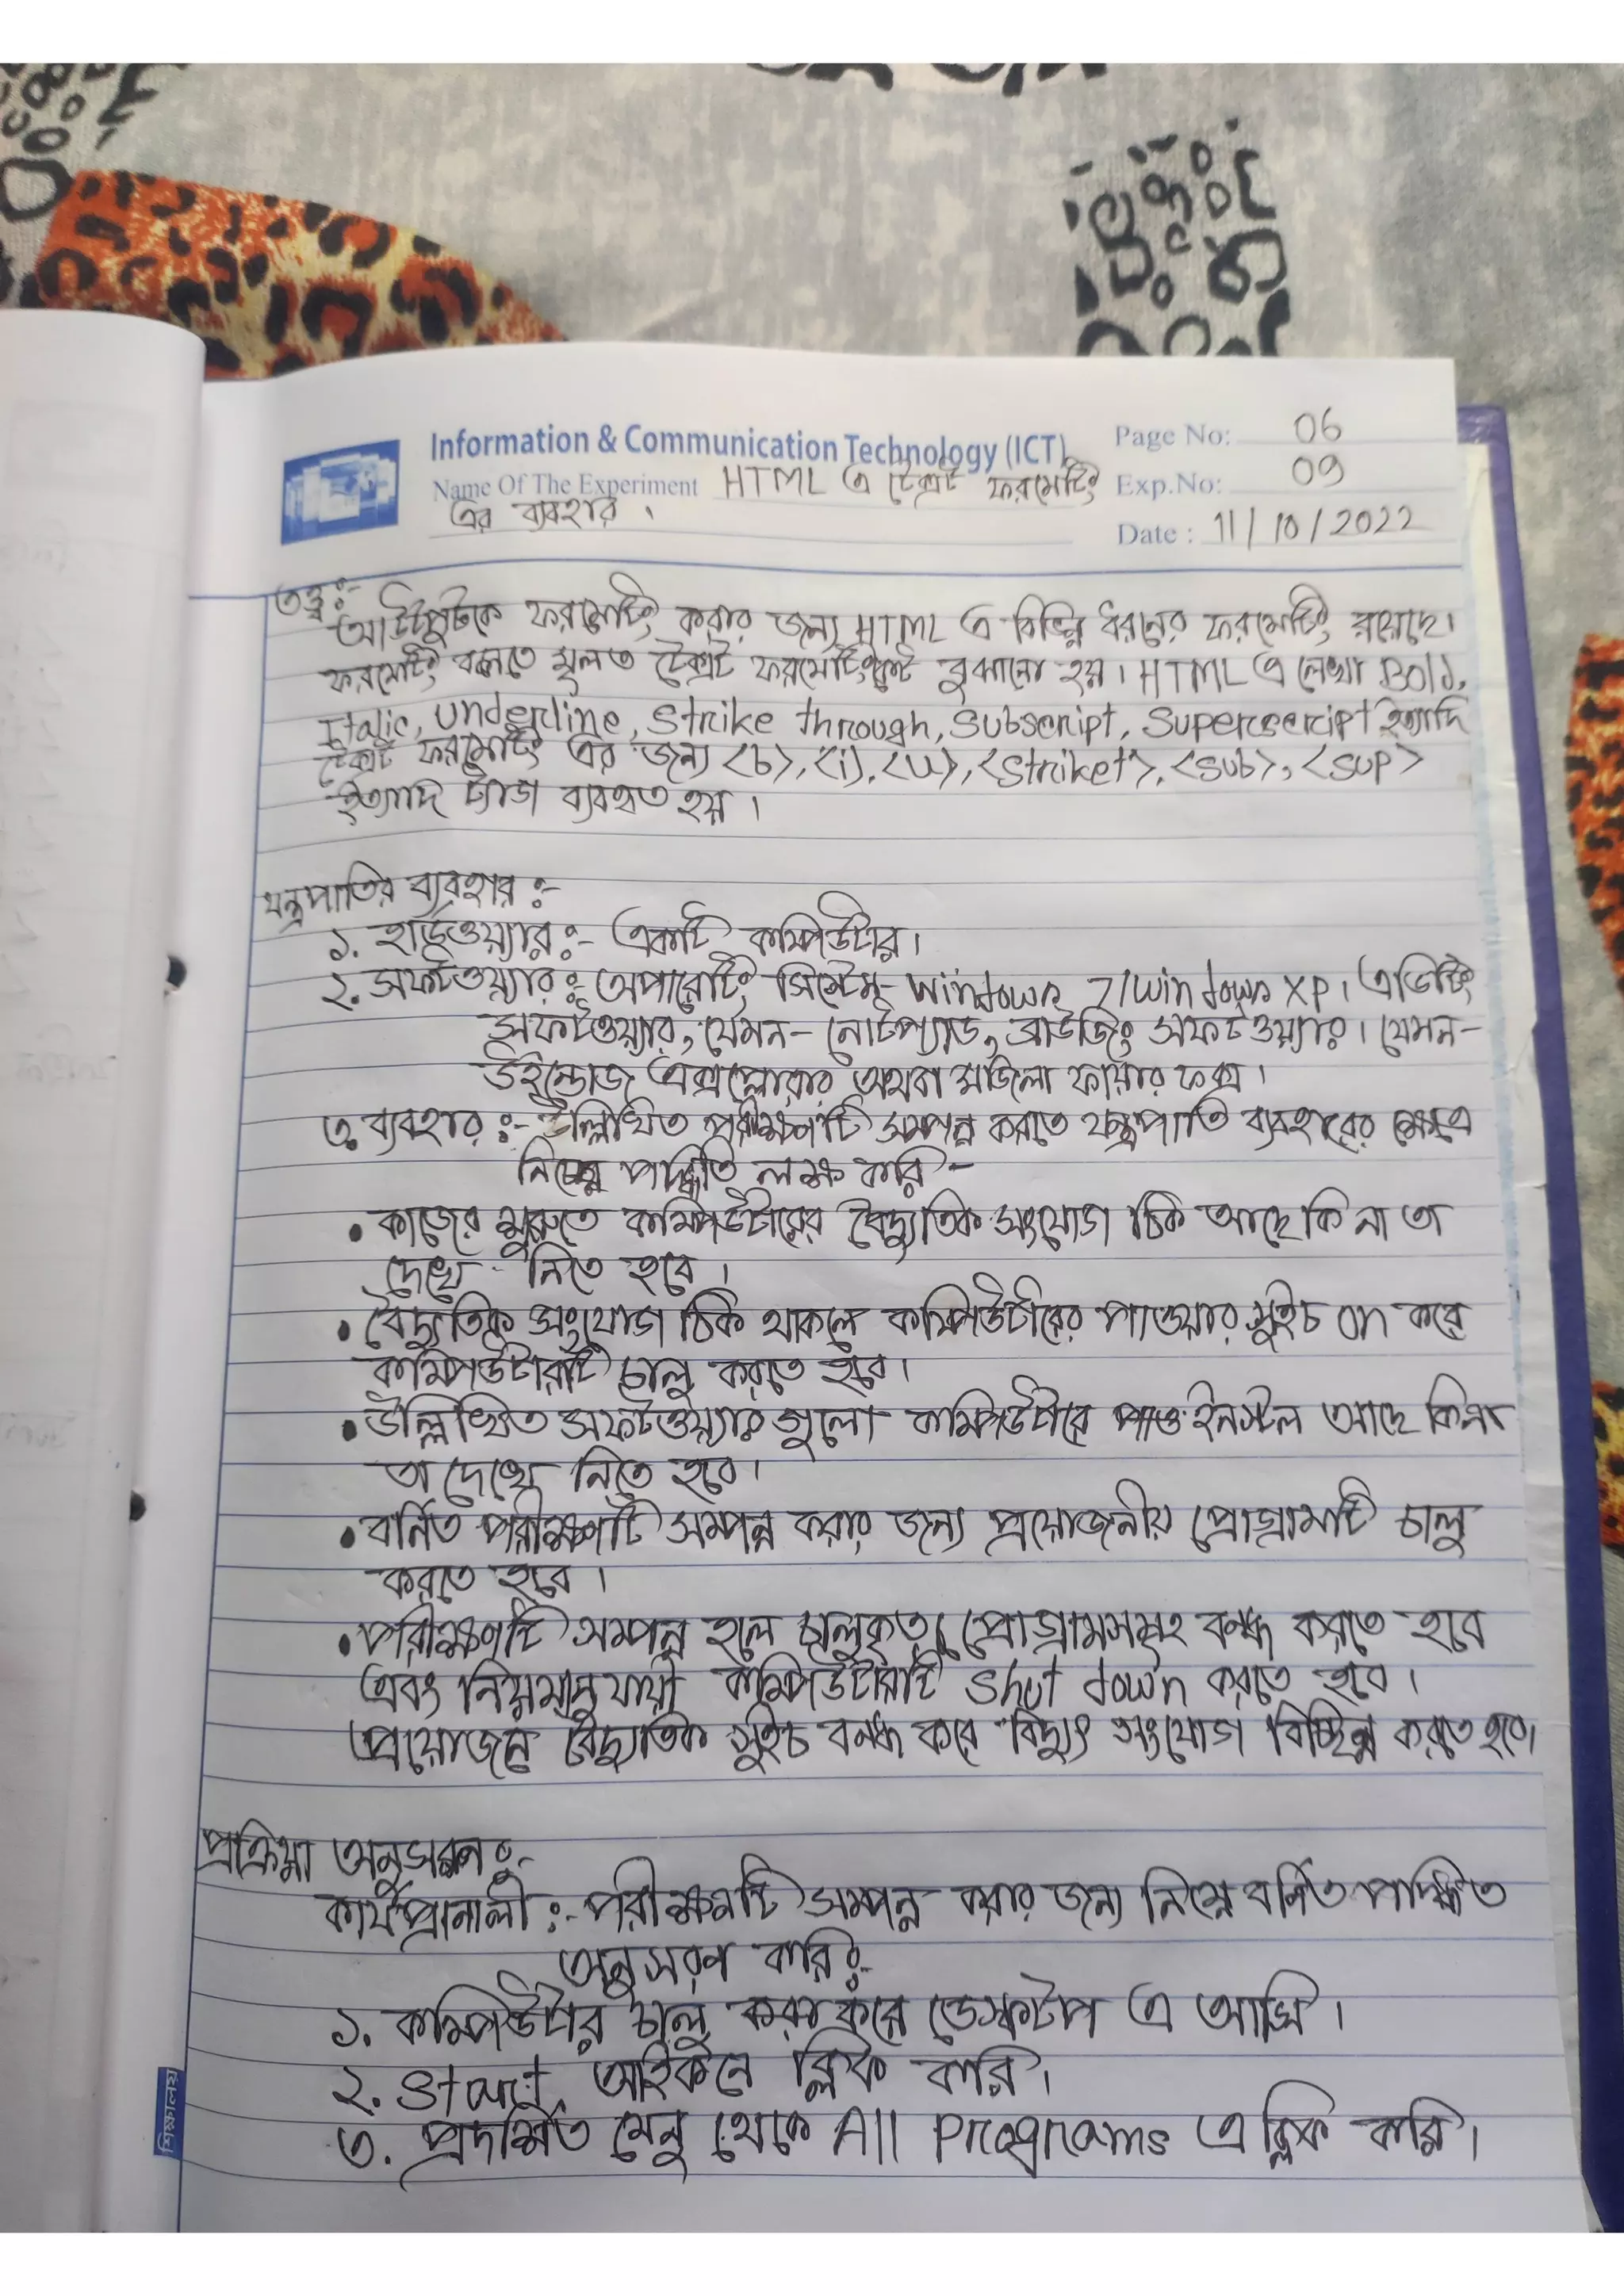 Information & Communication Technology (ICT)
Page No: 06
Name Of The Experiment HTML এ টেক্সট ফরমেটিং
Exp.No: 09
এর ব্যবহার ।
Date : 11/10/2022
তত্ত্ব:-
আউটপুটকে ফরমেটিং করার জন্য HTML এ বিভিন্ন ধরনের ফরমেটিং রয়েছে।
ফরমেটিং বলতে মূলত টেক্সট ফরমেটিংকেই বুঝানো হয়। HTML এ লেখা Bold,
Italic, Underline, Strike through, Subscript, Superscript ইত্যাদি
টেক্সট ফরমেটিং এর জন্য <b>, <i>, <u>, <striket>, <sub>, <sup>
ইত্যাদি ট্যাগ ব্যবহৃত হয় ।
যন্ত্রপাতির ব্যবহার :-
১. হার্ডওয়্যার:- একটি কম্পিউটার।
২. সফটওয়্যার:- অপারেটিং সিস্টেম- Windown 7/Windown XP। এডিটিং
সফটওয়্যার, যেমন- নোটপ্যাড, ব্রাউজিং সফটওয়্যার। যেমন-
উইন্ডোজ এক্সপ্লোরার অথবা মজিলা ফায়ার ফক্স।
৩. ব্যবহার:- উল্লিখিত পরীক্ষণটি সম্পন্ন করতে যন্ত্রপাতি ব্যবহারের ক্ষেত্রে
নিচের পদ্ধতি লক্ষ করি -
• কাজের শুরুতে কম্পিউটারের বৈদ্যুতিক সংযোগ ঠিক আছে কি না তা
দেখে নিতে হবে ।
• বৈদ্যুতিক সংযোগ ঠিক থাকলে কম্পিউটারের পাওয়ার সুইচ on করে
কম্পিউটারটি চালু করতে হবে।
• উল্লিখিত সফটওয়্যার গুলো কম্পিউটারে ইনস্টল আছে কিনা
তা দেখে নিতে হবে।
• বর্নিত পরীক্ষণটি সম্পন্ন করার জন্য প্রয়োজনীয় প্রোগ্রামটি চালু
করতে হবে ।
• পরীক্ষণটি সম্পন্ন হলে চালুকৃত প্রোগ্রামসমূহ বন্ধ করতে হবে
এবং নিয়মানুযায়ী কম্পিউটারটি Shut down করতে হবে ।
প্রয়োজনে বৈদ্যুতিক সুইচ বন্ধ করে বিদ্যুৎ সংযোগ বিচ্ছিন্ন করতে হবে।
প্রক্রিয়া অনুসরন:-
কার্যপ্রনালী :- পরীক্ষনটি সম্পন্ন করার জন্য নিম্নে বর্নিত পদ্ধতি
অনুসরণ করি:-
১. কম্পিউটার চালু করে ডেস্কটপ এ আসি ।
২. Start আইকনে ক্লিক করি।
৩. প্রদর্শিত মেনু থেকে All Programs এ ক্লিক করি।
শিক্ষালয়